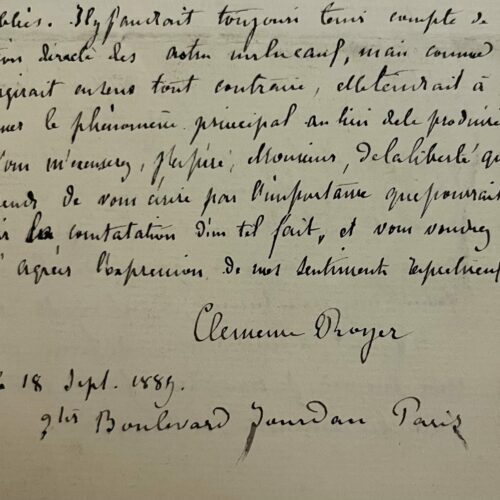 bliés. Il y faudrait toujours tenir compte de
tion directe des astres sur
agirait en sens tout contraire, elle tendrait à
le phénomène principal au lieu de le produire
Vous m'excuserez, j'espère, Monsieur, de la liberté que
prends de vous écrire par l'importance que pourrait
la constatation d'un tel fait, et vous voudrez
agréer l'expression de mes sentiments respectueux
Clemence Royer
18 Sept. 1889.
9ter Boulevard Jourdan Paris